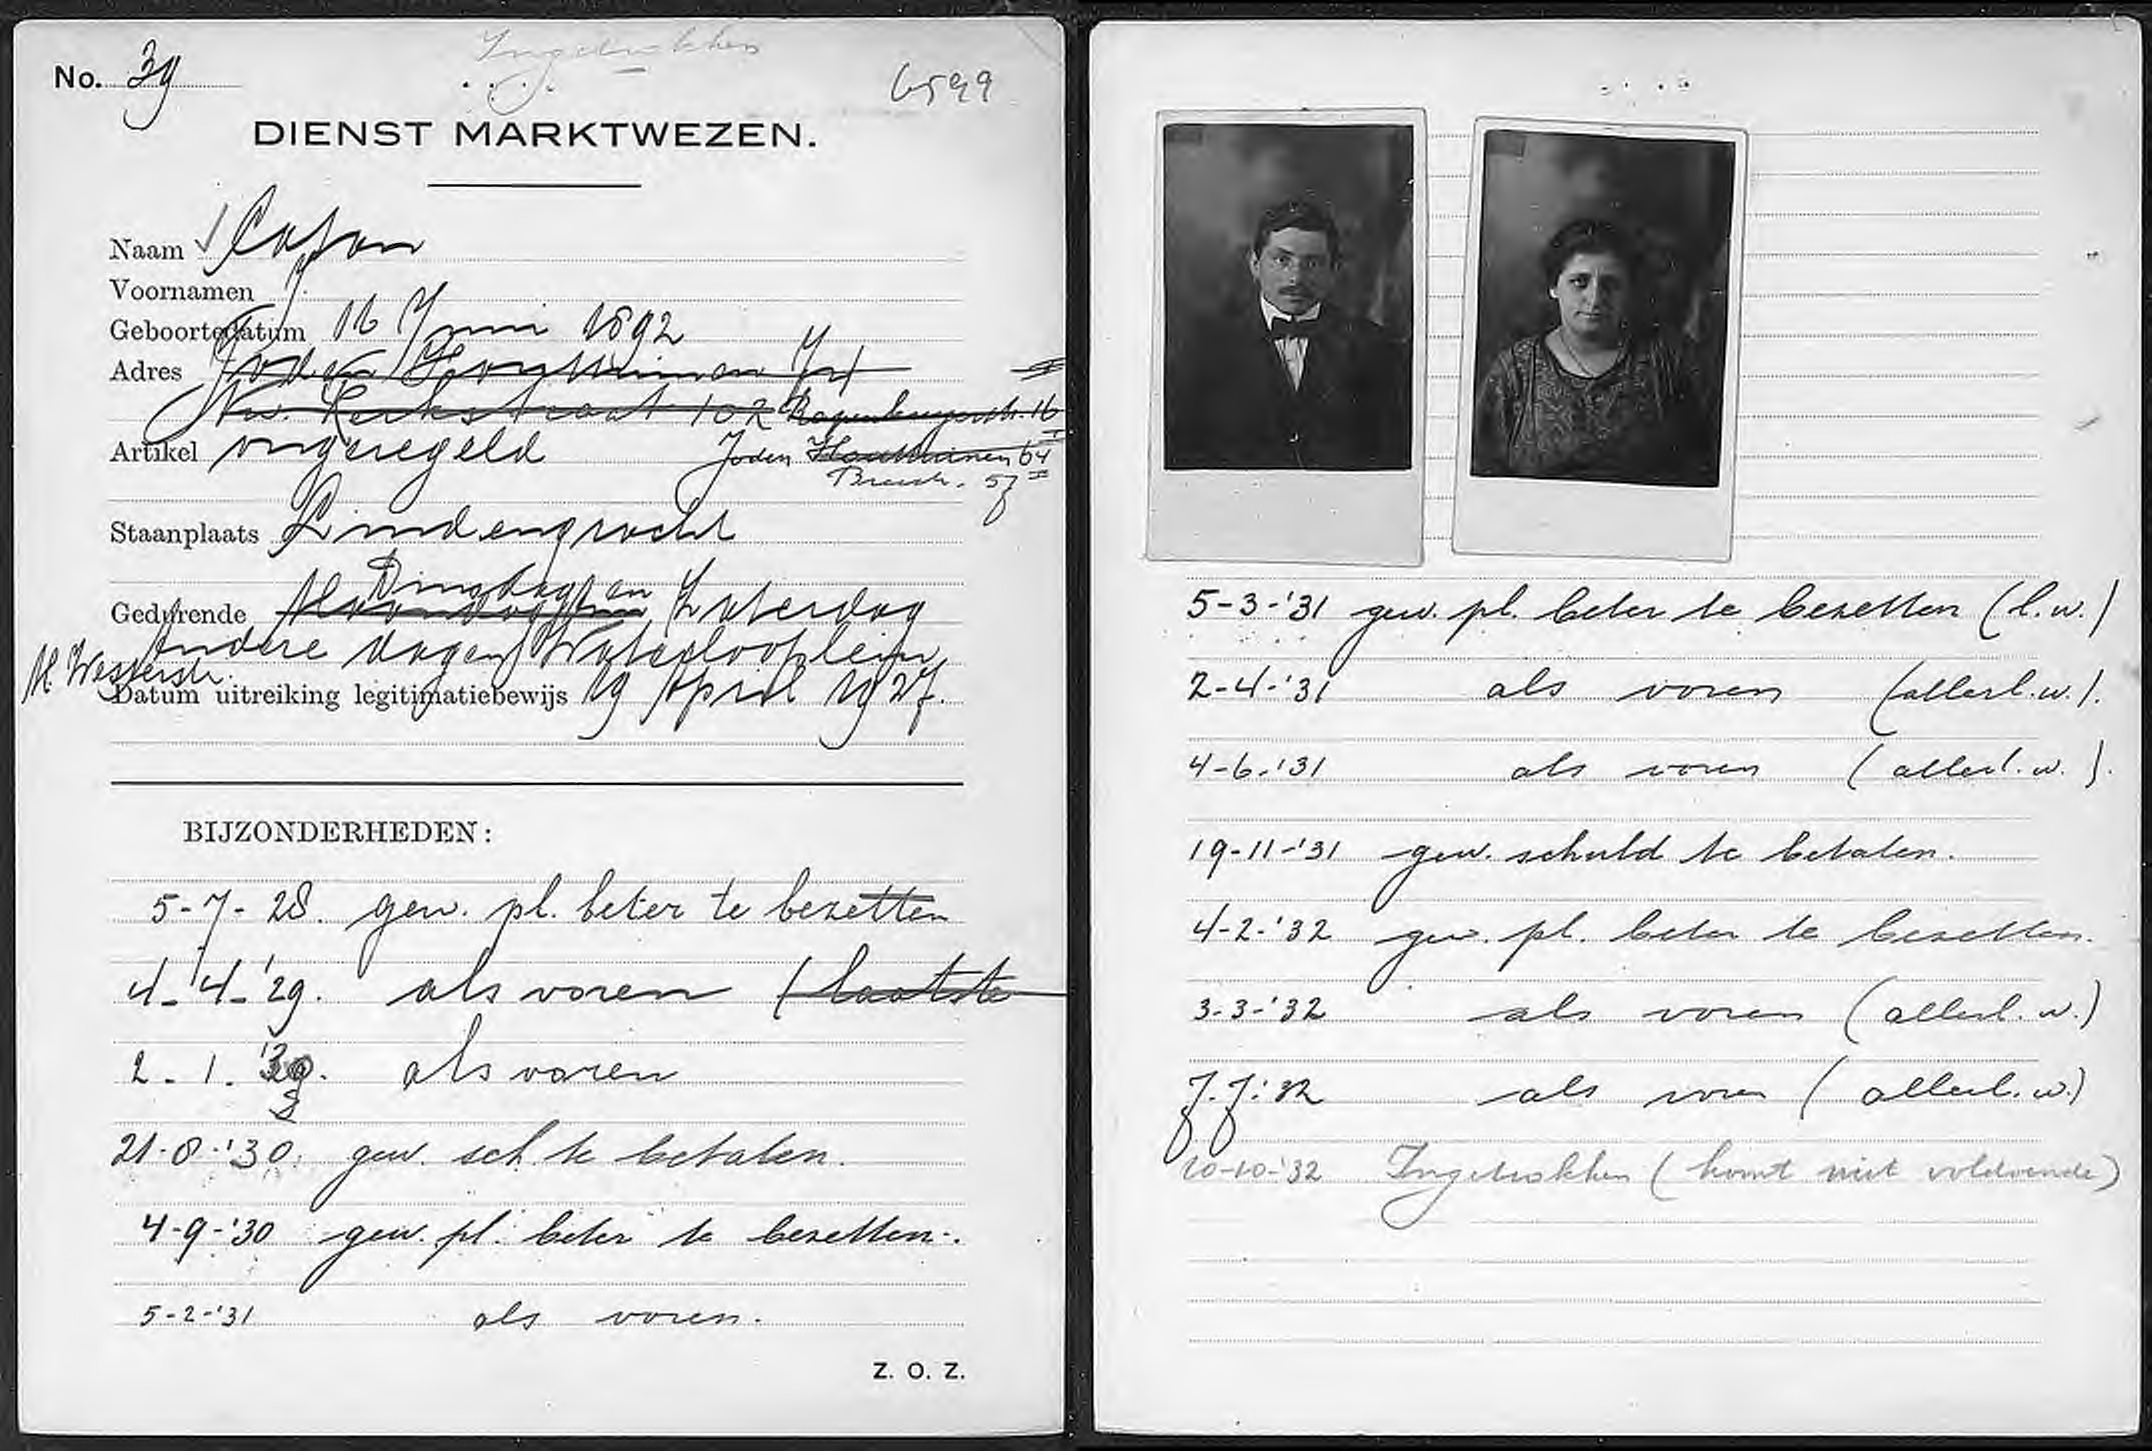 Ingetrokken
No. 39
6599
DIENST MARKTWEZEN.
Naam Cohen
Voornamen J.
Geboortedatum 16 Juni 1892
Adres Joden Houttuinen
Nw. Kerkstraat 102 Rapenburgerstr. 16
Artikel ongeregeld Joden Houttuinen 64 II
Breestr. 57
Staanplaats Lindengracht
Dinsdag en
Gedurende Maandag en Zaterdag
Andere dagen Waterlooplein
M. Westerstr.
Datum uitreiking legitimatiebewijs 19 April 1927.
BIJZONDERHEDEN:
5-7-28. gew. pl. beter te bezetten
4-4-'29. als voren (laatste
2-1-'30. als voren
21-8-'30. gew. sch. te betalen.
4-9-'30 gew. pl. beter te bezetten.
5-2-'31 als voren.
Z. O. Z.
5-3-'31 gew. pl. beter te bezetten (l.w.)
2-4-'31 als voren (allerl.w.).
4-6-'31 als voren (allerl.w.).
19-11-'31 gew. schuld te betalen.
4-2-'32 gew. pl. beter te bezetten.
3-3-'32 als voren (allerl.w.)
7-7-'32 als voren (allerl.w.)
10-10-'32 Ingetrokken (komt niet voldoende)